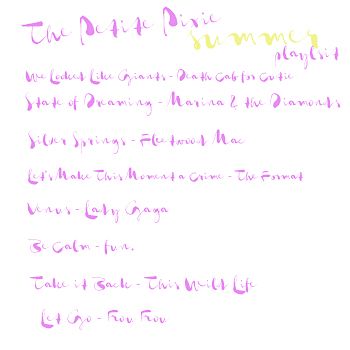 The Petite Pixie
summer
playlsit
We Looked Like Giants - Death Cab for Cutie
State of Dreaming - Marina & the Diamonds
Silver Springs - Fleetwood Mac
Let's Make This Moment a Crime - The Format
Venus - Lady Gaga
Be Calm - fun.
Take it Back - This Wild Life
Let Go - Frou Frou